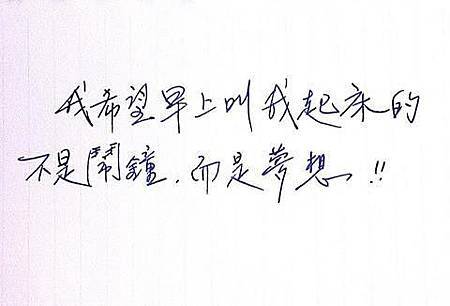 我希望早上叫我起床的
不是鬧鐘，而是夢想!!